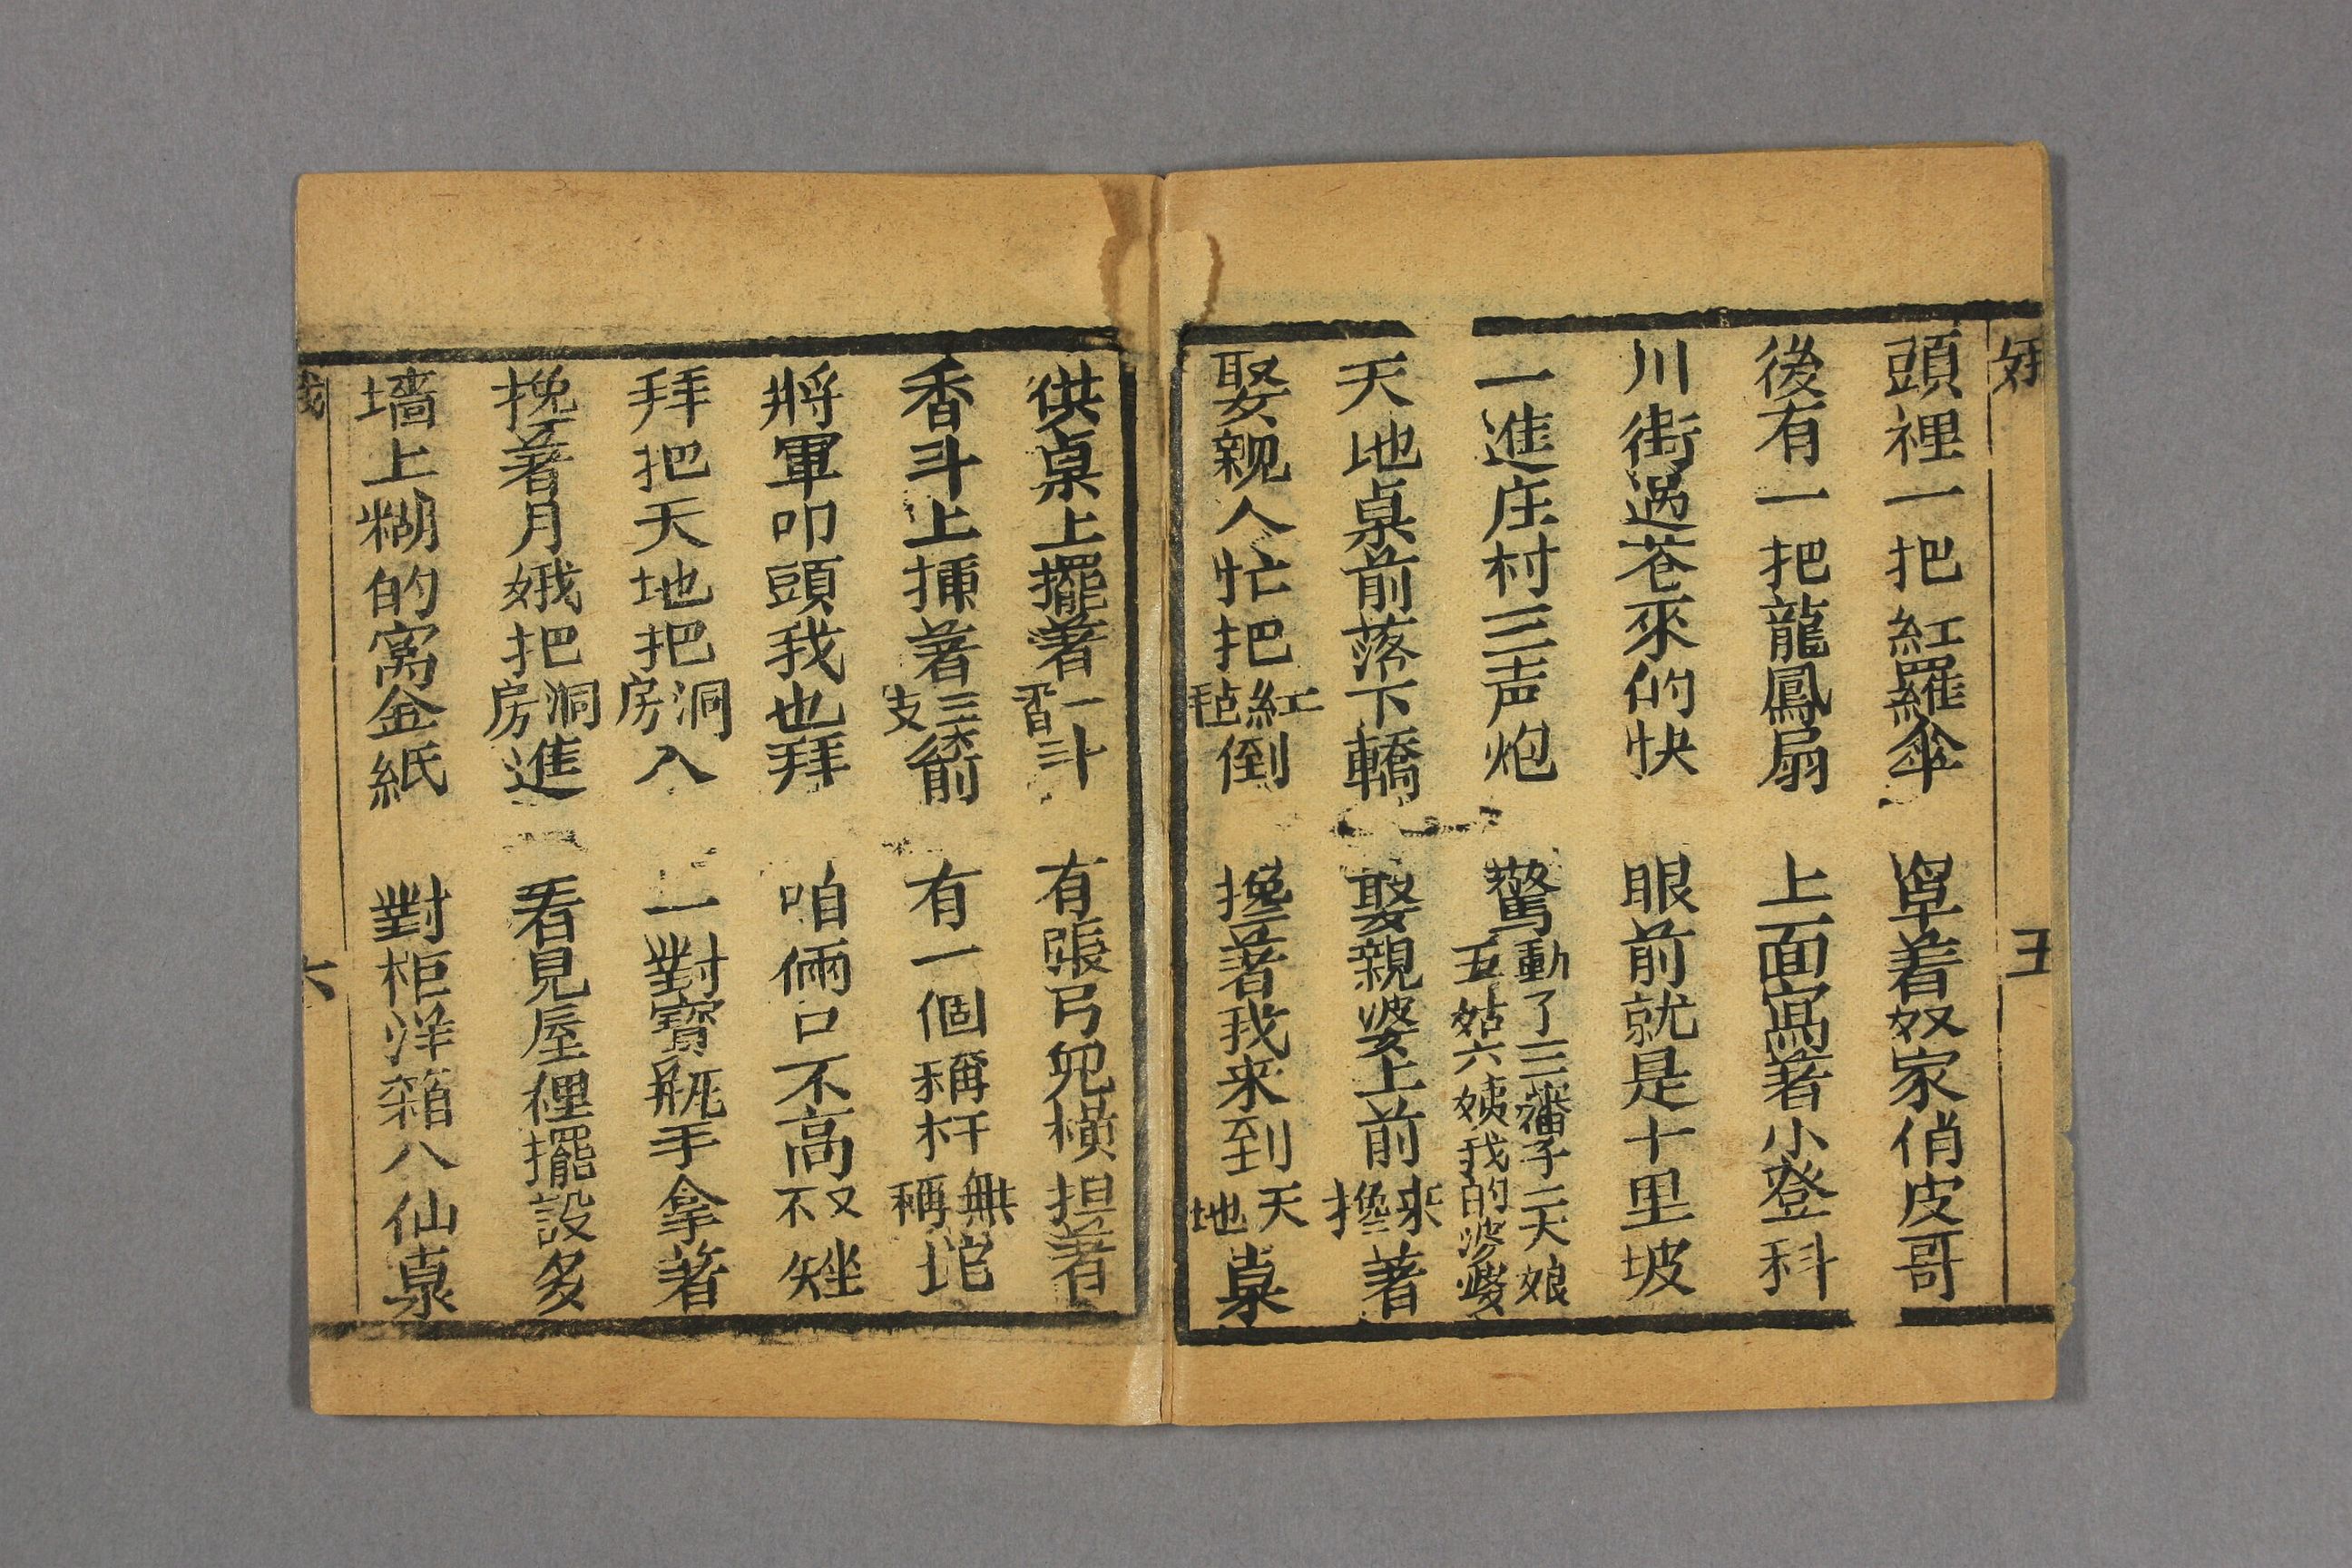 頭裡一把紅羅傘　罩着奴家俏皮哥
後有一把龍鳳扇　上面寫著小登科
川街過巷來的快　眼前就是十里坡
一進庄村三声炮　驚動了三嬸子二大娘五姑六姨我的婆婆
天地桌前落下轎　娶親婆上前来攙著
娶親人忙把紅毡倒　攙著我来到天地桌
供桌上擺著一斗香斗　有張弓兒橫担著
香斗上揷著三支箭　有一個稱杆無稱坨
將軍叩頭我也拜　咱倆口不高又不矬
拜把天地把洞房入　一對寶瓶手拿著
挽著月娥把洞房進　看見屋裡擺設多
墻上糊的窩金紙　對柜洋箱八仙桌
五
六